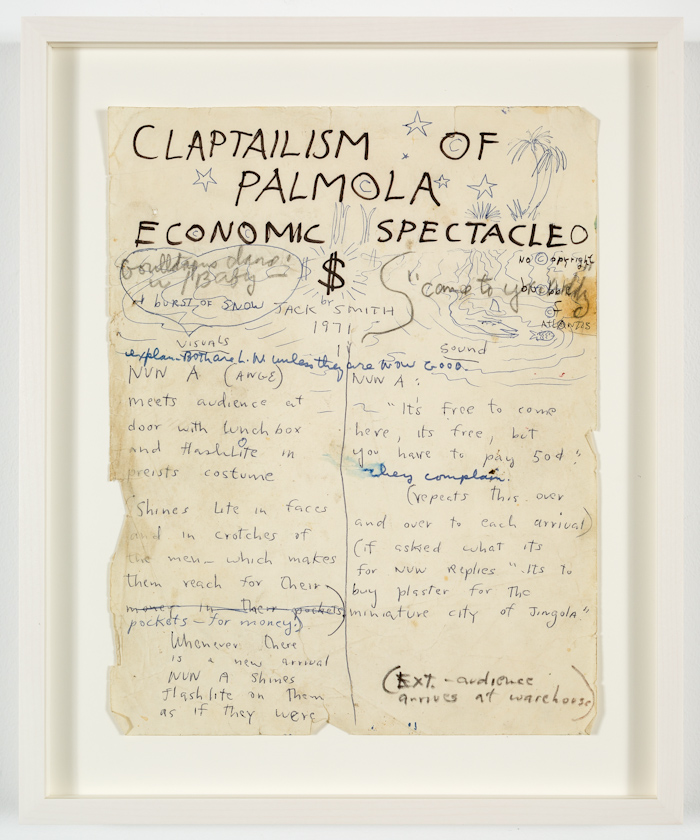 CLAPTAILISM OF
PALMOLA
ECONOMIC SPECTACLEO
$
No © opyright
"come to
at burst of snow
by
JACK SMITH
1971
ATLANTIS
Visuals
explan. Both are L. N unless they are now Good.
NUN A (ANGE)
meets audience at
door with lunchbox
and flashlite in
preists costume
Shines lite in faces
and in crotches of
the men – which makes
them reach for their
money in their pockets
pockets – for money.)
Whenever there
is a new arrival
NUN A shines
flashlite on them
as if they were
Sound
NUN A:
"It's free to come
here, its free, but
you have to pay 50¢".
they complain.
(repeats this over
and over to each arrival)
(if asked what its
for NUN Replies "Its to
buy plaster for the
miniature city of Jingola."
(Ext. – audience
arrives at warehouse)